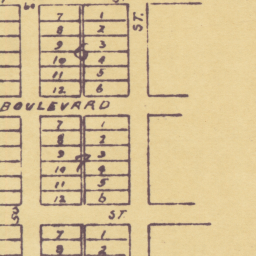 60
ST.
7 1
8 2
9 3
10 4
11 5
12 6
BOULEVARD
7 1
8 2
9 3
10 4
11 5
12 6
60
ST.
7 1
8 2